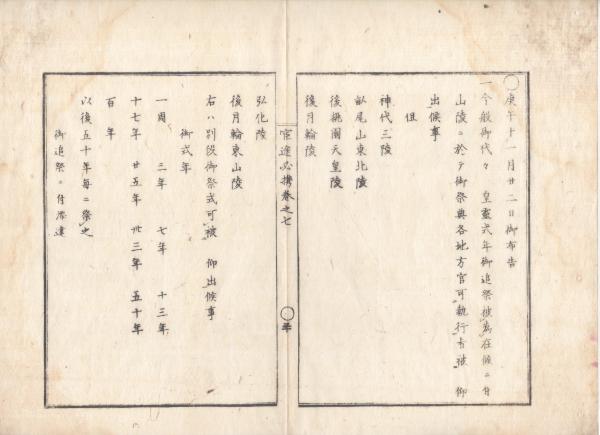 〇庚午十一月廿二日御布告
一今般御代々　皇霊式年御追祭被為在候ニ付
山陵ニ於テ御祭典各地方官可執行旨被　仰
出候事
但
神代三陵
畝尾山東北陵
後桃園天皇陵
後月輪陵
宦途必携巻之七
弘化陵
後月輪東山陵
右ハ別段御祭式可被　仰出候事
御式年
一周　三年　七年　十三年
十七年　廿五年　卅三年　五十年
百年
以後五十年毎ニ祭之
御追祭ニ付